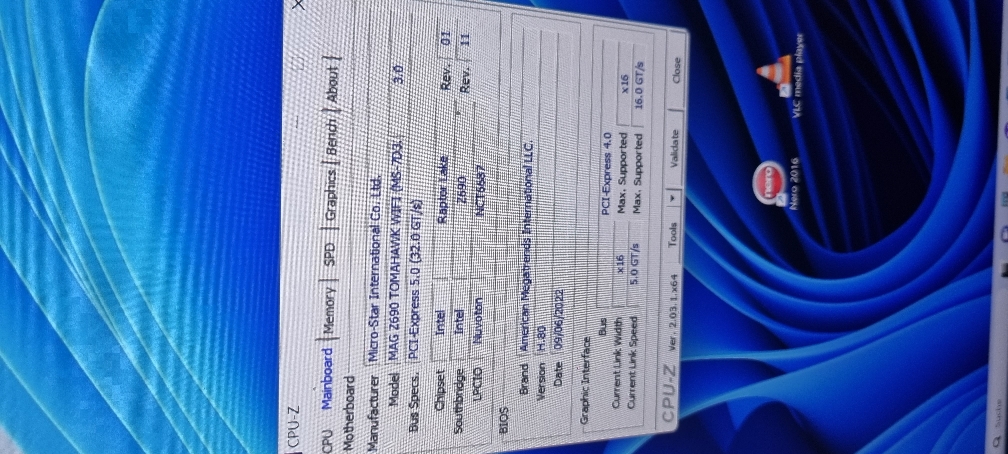 CPU-Z
CPU Mainboard Memory SPD Graphics Bench About
Motherboard
Manufacturer Micro-Star International Co. Ltd.
Model MAG Z690 TOMAHAWK WIFI 3.0
Bus Specs. PCI-Express 5.0 (32.0 GT/s)
Chipset Intel Raptor Lake Rev. 01
Southbridge Intel Z690 Rev. 11
LPCIO Nuvoton NCT6687
BIOS
Brand American Megatrends International LLC.
Version H.80
Date 09/06/2022
Graphic Interface
Bus PCI-Express 4.0
Current Link Width x16 Max. Supported x16
Current Link Speed 5.0 GT/s Max. Supported 16.0 GT/s
CPU-Z Ver. 2.03.1.x64 Tools Validate Close
nero
Nero 2016
VLC media player